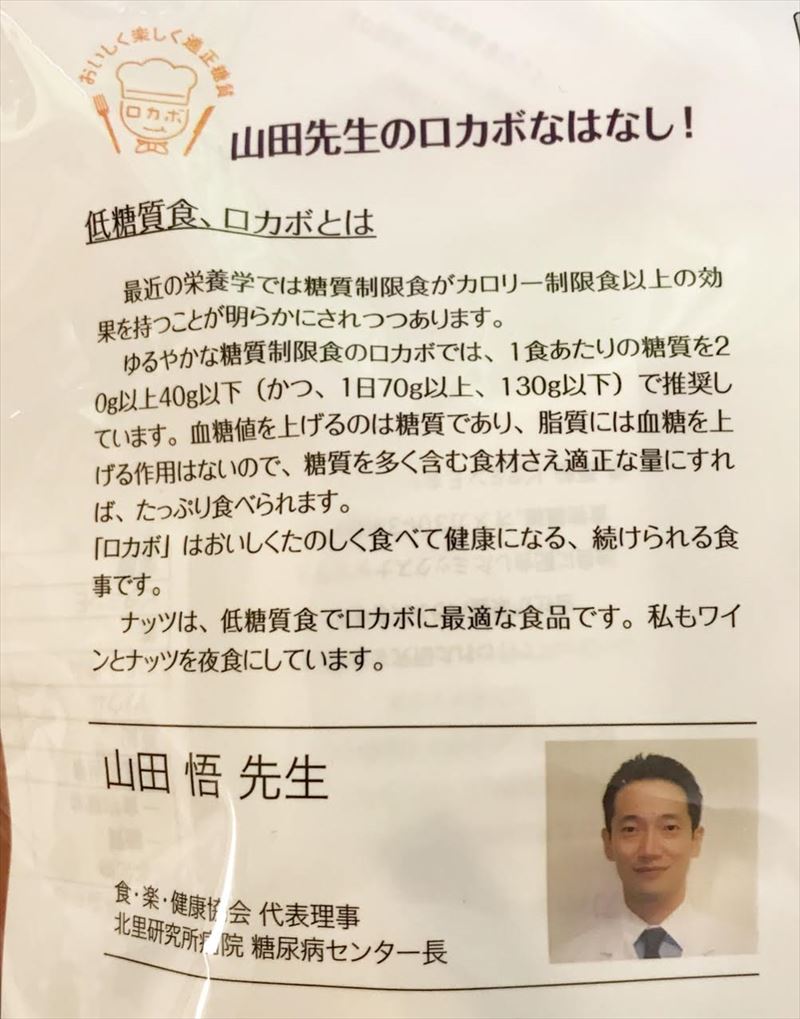 おいしく楽しく適正糖質
ロカボ
山田先生のロカボなはなし！
低糖質食、ロカボとは
最近の栄養学では糖質制限食がカロリー制限食以上の効
果を持つことが明らかにされつつあります。
ゆるやかな糖質制限食のロカボでは、1食あたりの糖質を2
0g以上40g以下（かつ、1日70g以上、130g以下）で推奨し
ています。血糖値を上げるのは糖質であり、脂質には血糖を上
げる作用はないので、糖質を多く含む食材さえ適正な量にすれ
ば、たっぷり食べられます。
「ロカボ」はおいしくたのしく食べて健康になる、続けられる食
事です。
ナッツは、低糖質食でロカボに最適な食品です。私もワイ
ンとナッツを夜食にしています。
山田 悟 先生
食・楽・健康協会 代表理事
北里研究所病院 糖尿病センター長